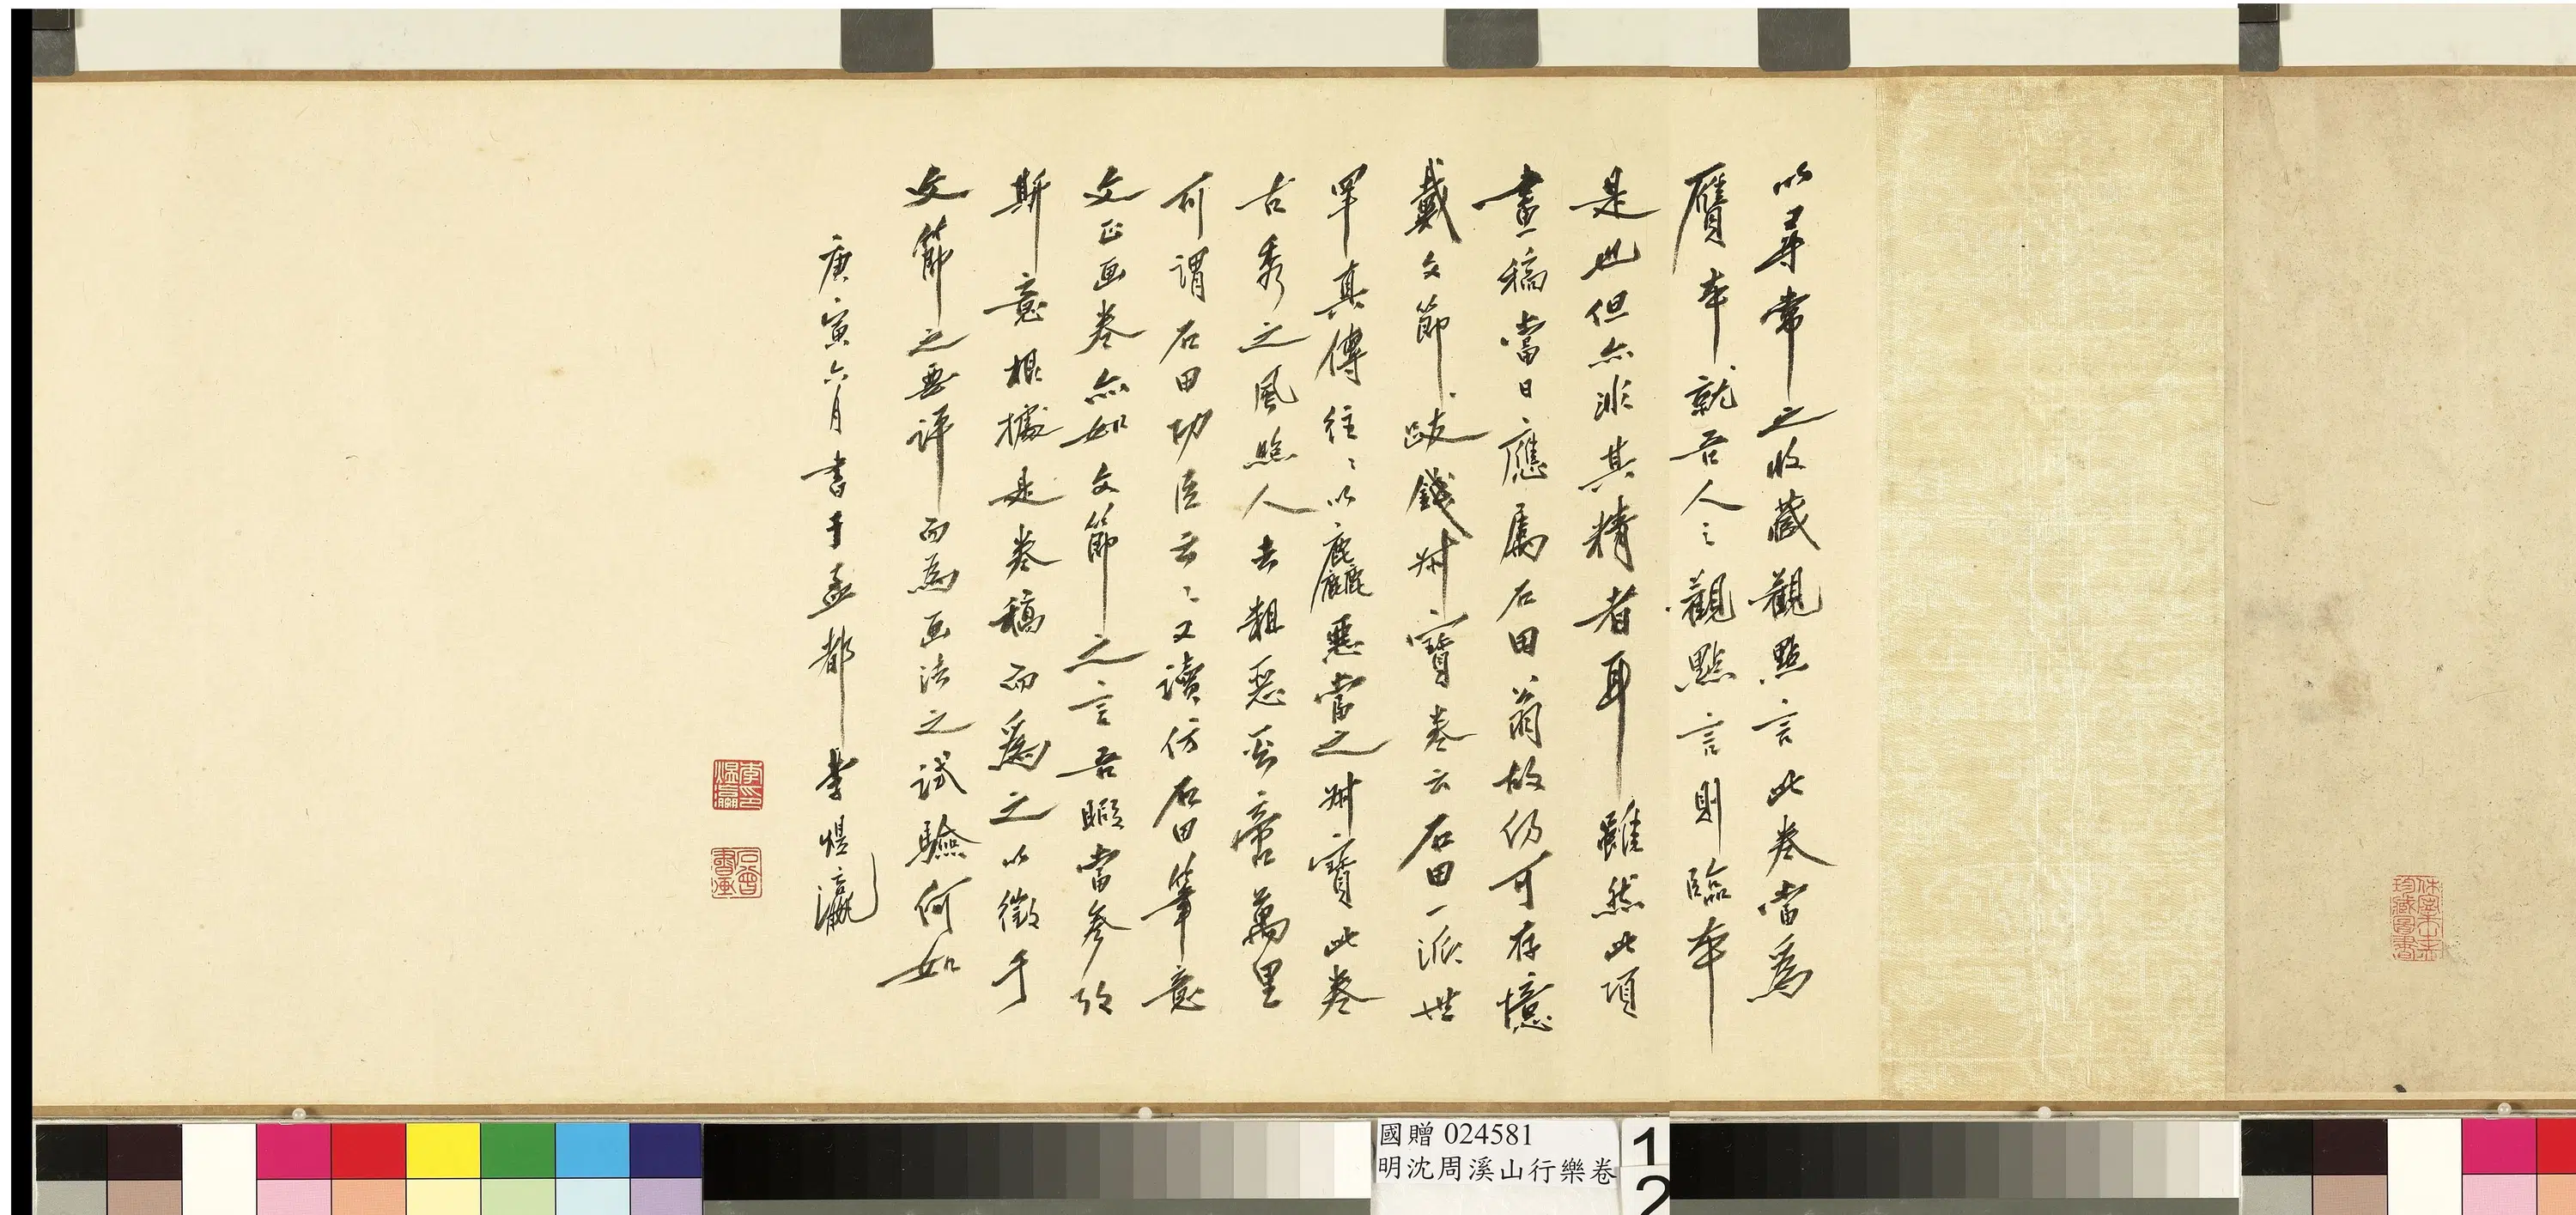 以尋常之收藏觀點言此卷當爲
贋本就吾人之觀點言則臨本
是也但亦非其精者耳雖然此項
畫稿當日應屬石田翁故仍可存憶
戴文節跋錢叔寶卷云石田一派世
罕真傳往〻以麤惡當之叔寶此卷
古秀之風照人去粗惡不啻萬里
可謂石田功臣云〻又讀仿石田筆意
文正画卷亦如文節之言吾暇當參攷
斯意根據是卷稿而爲之以徵于
文節之要評而為画法之試驗何如
庚寅六月書于孟都李煜瀛
李印煜瀛
石曾書画
國贈 024581
明沈周溪山行樂卷
1
2